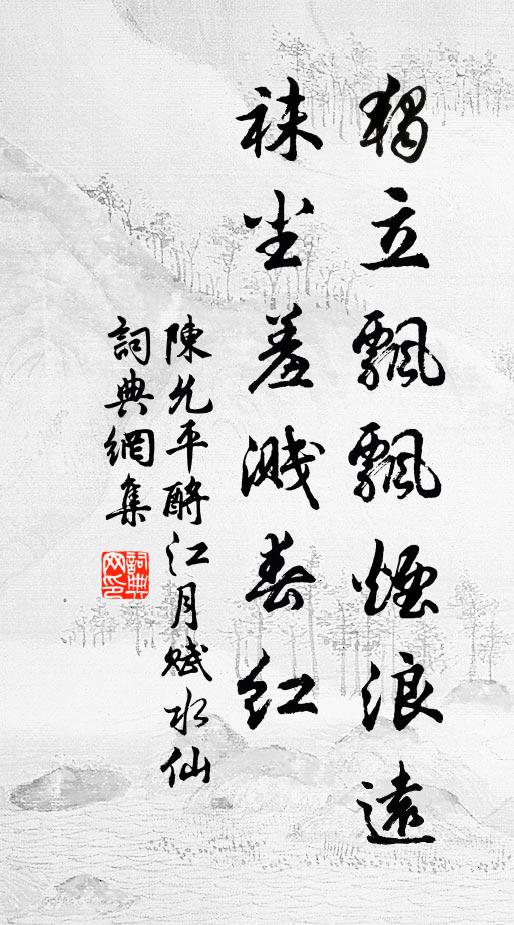 獨立飄飄煙浪遠
袜塵羞濺春紅
陳允平酹江月賦水仙
詞典網集
詞典網印